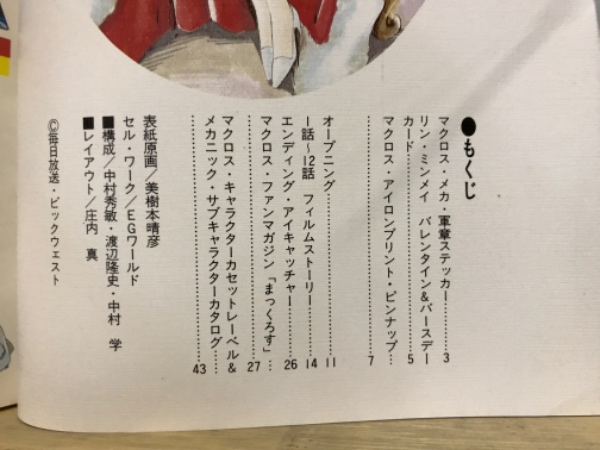 ●もくじ
マクロス・メカ・軍章ステッカー……3
リン・ミンメイ バレンタイン&バースデー
カード……5
マクロス・アイロンプリント・ピンナップ…
……7
オープニング……11
1話〜12話 フィルムストーリー……14
エンディング・アイキャッチャー……26
マクロス・ファンマガジン「まっくろす」…
……27
マクロス・キャラクターカセットレーベル&
メカニック・サブキャラクターカタログ……
……43
表紙原画/美樹本晴彦
セル・ワーク/EGワールド
■構成/中村秀敏・渡辺隆史・中村 学
■レイアウト/庄内 真
©毎日放送・ビックウェスト